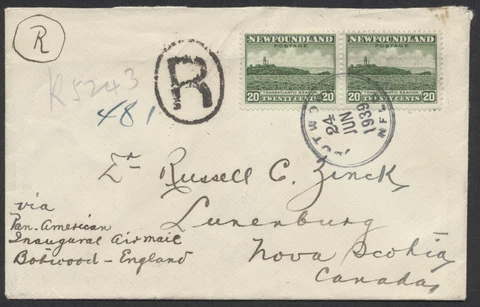 R
K5243
481
R
NEWFOUNDLAND
POSTAGE
TRANSATLANTIC BEACON
20 TWENTY CENTS 20
NEWFOUNDLAND
POSTAGE
TRANSATLANTIC BEACON
20 TWENTY CENTS 20
JUN
24
1939
NFL
Russell C. Zinck,
Lunenburg
Nova Scotia,
Canada,
via
Pan. American
Inaugural Airmail
Botwood - England